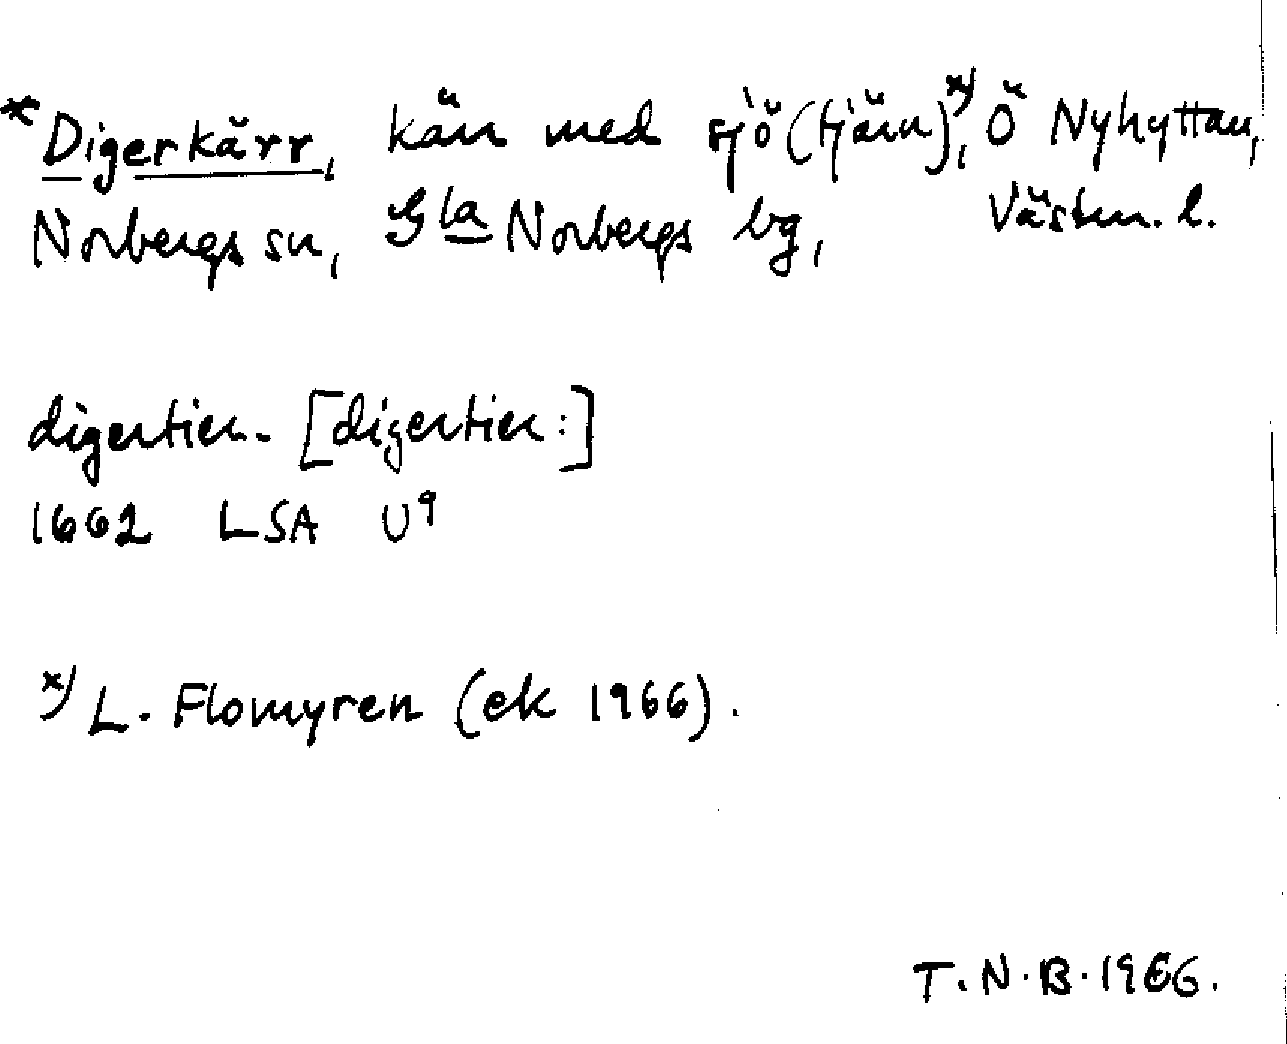 *Digerkärr, kärr med sjö (tjärn)x), Ö Nyhyttan,
Norbergs sn, Gla Norbergs bg, Västm. l.
digertier. [digertier:]
1662 LSA U9
x) L. Flomyren (ek 1966).
T.N.B. 1966.